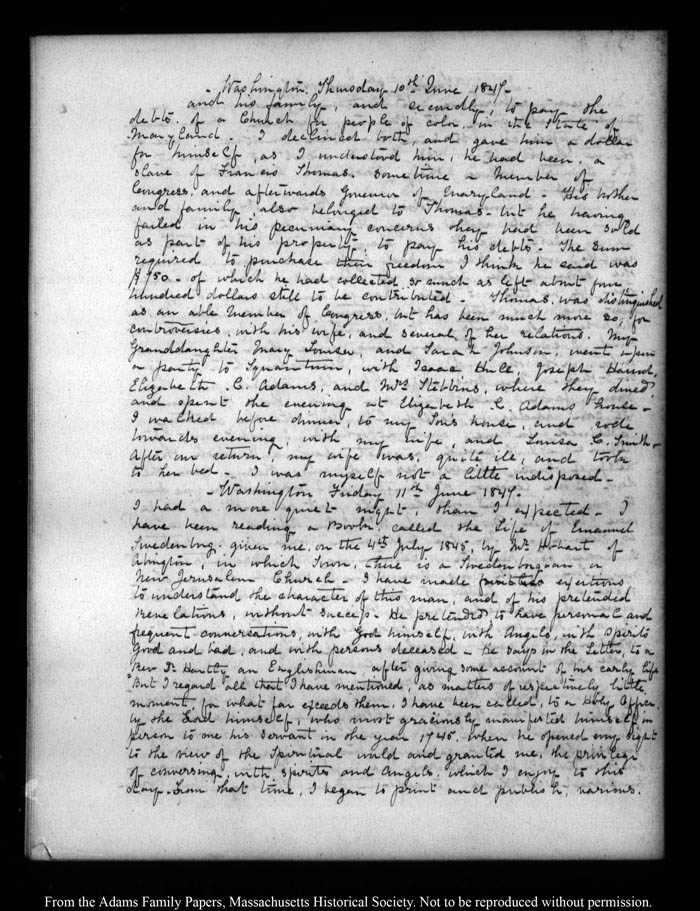 - Washington. Thursday 10th June 1847-
and his family, and secondly, to pay the
debts of a Church for people of color, in the State of
Maryland - I declined both, and gave him a dollar
for himself, as I understood him, he had been, a
slave of Francis Thomas. Sometime a Member of
Congress, and afterwards Governor of Maryland - His mother
and family, also belonged to Thomas - but he having
failed in his pecuniary concerns they had been sold
as part of his property, to pay his debts. The sum
required to purchase their freedom I think he said was
$750 - of which he had collected so much as left about four
hundred dollars still to be contributed - Thomas, was distinguished
as an able Member of Congress, but has been much more so, for
controversies, with his wife, and several of her relations. My
Granddaughter Mary Louisa, and Sarah Johnson, went upon
a party to Squantum, with Isaac Hull, Joseph
Elizabeth C. Adams, and Mrs Stebbins, where they dined,
and spent the evening at Elizabeth C. Adams' house -
I walked before dinner, to my Son's house, and rode
towards evening, with my wife, and Louisa C. Smith -
After our return, my wife was, quite ill, and took
to her bed - I was myself not a little indisposed -
- Washington Friday 11th June 1847.
I had a more quiet night, than I expected - I
have been reading a Book, called the Life of Emanuel
Swedenborg, given me, on the 4th July 1845, by Mr Hobart of
Abington, in which Town, there is a Swedenborgian or
New Jerusalem Church - I have made exertions
to understand the character of this man, and of his pretended
revelations, without success - He pretended to have personal and
frequent conversations, with God himself, with Angels, with Spirits
good and bad, and with persons deceased - He says in the Letter, to a
Rev Dr Hartley an Englishman, after giving some account of his early life
"But I regard all that I have mentioned, as matters of respectively little
moment, for what far exceeds them, I have been called, to a Holy Office,
by the Lord himself, who most graciously manifested himself in
person to me his Servant in the year 1745. when he opened my sight
to the view of the Spiritual world and granted me, the privilege
of conversing, with spirits and Angels, which I enjoy to this
day - From that time, I began to print and publish, various.
From the Adams Family Papers, Massachusetts Historical Society. Not to be reproduced without permission.